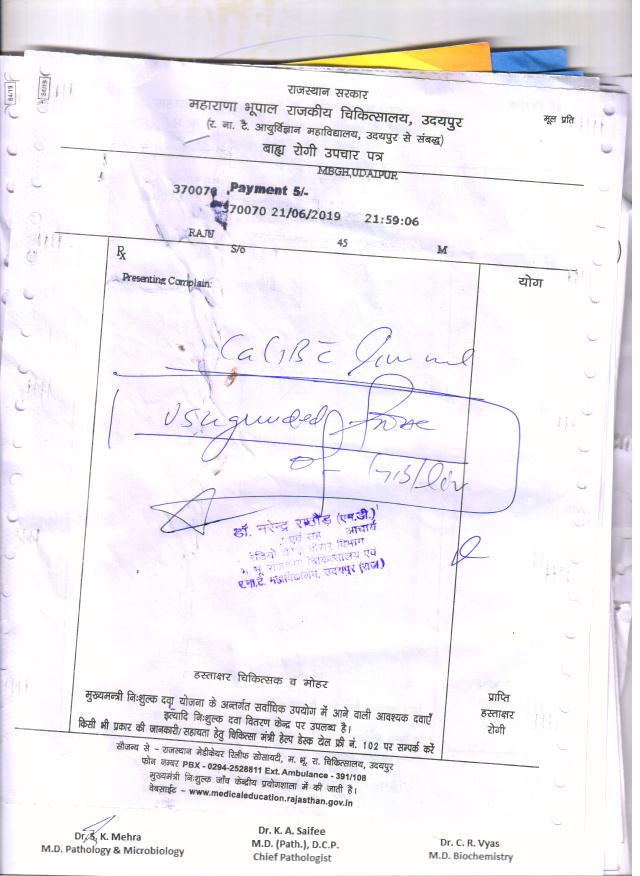 84/19
84/19
राजस्थान सरकार
महाराणा भूपाल राजकीय चिकित्सालय, उदयपुर
मूल प्रति
(र. ना. टै. आयुर्विज्ञान महाविद्यालय, उदयपुर से संबद्ध)
बाह्य रोगी उपचार पत्र
MBGH,UDAIPUR
370070 Payment 5/-
370070 21/06/2019 21:59:06
RAJU S/o 45 M
Rx
योग
Presenting Complain:
Ca GB c
USG guided
of GB/Liv
डॉ. नरेन्द्र राठौड़ (एम.डी.)
एवं सह आचार्य
विभाग
चिकित्सालय एवं
महाविद्यालय, उदयपुर (राज)
हस्ताक्षर चिकित्सक व मोहर
मुख्यमन्त्री निःशुल्क दवा योजना के अन्तर्गत सर्वाधिक उपयोग में आने वाली आवश्यक दवाएँ
इत्यादि निःशुल्क दवा वितरण केन्द्र पर उपलब्ध है।
किसी भी प्रकार की जानकारी/सहायता हेतु चिकित्सा मंत्री हेल्प डेस्क टोल फ्री नं. 102 पर सम्पर्क करें
प्राप्ति
हस्ताक्षर
रोगी
सौजन्य से - राजस्थान मेडीकेयर रिलीफ सोसायटी, म. भू. रा. चिकित्सालय, उदयपुर
फोन नम्बर PBX - 0294-2528811 Ext. Ambulance - 391/108
मुख्यमंत्री निःशुल्क जाँच केन्द्रीय प्रयोगशाला में की जाती है।
वेबसाईट - www.medicaleducation.rajasthan.gov.in
Dr. S. K. Mehra
M.D. Pathology & Microbiology
Dr. K. A. Saifee
M.D. (Path.), D.C.P.
Chief Pathologist
Dr. C. R. Vyas
M.D. Biochemistry